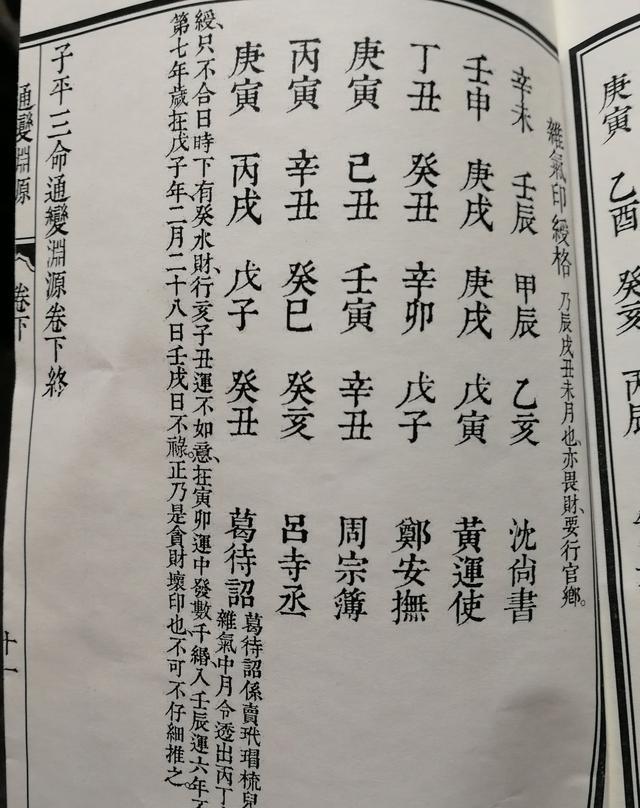 庚寅 乙酉 癸亥 丙辰
雜氣印綬格 乃辰戌丑未月也、亦畏財、要行官鄉。
辛未 壬辰 甲辰 乙亥 沈尚書
壬申 庚戌 庚戌 戊寅 黃運使
丁丑 癸丑 辛卯 戊子 鄭安撫
庚寅 己丑 壬寅 辛丑 周宗簿
丙寅 辛丑 癸巳 癸亥 呂寺丞
庚寅 丙戌 戊子 癸丑 葛待詔
葛待詔係賣玳瑁梳兒
雜氣中月令透出丙丁
綬、只不合日時下有癸水財、行亥子丑運不如意、在寅卯運中發數千緡、入壬辰運六年
第七年歲在戊子年二月二十八日壬戌日不祿。正乃是貪財壞印也、不可不仔細推之。
子平三命通變淵源卷下終
通變淵源 卷下 十一